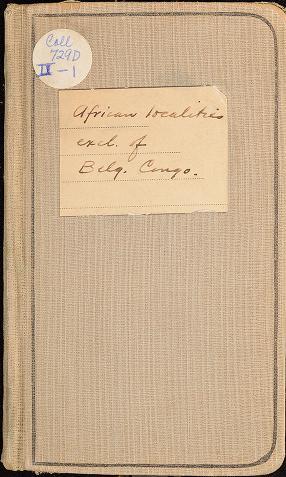 Coll
729D
II-1
African localities
excl. of
Belg. Congo.